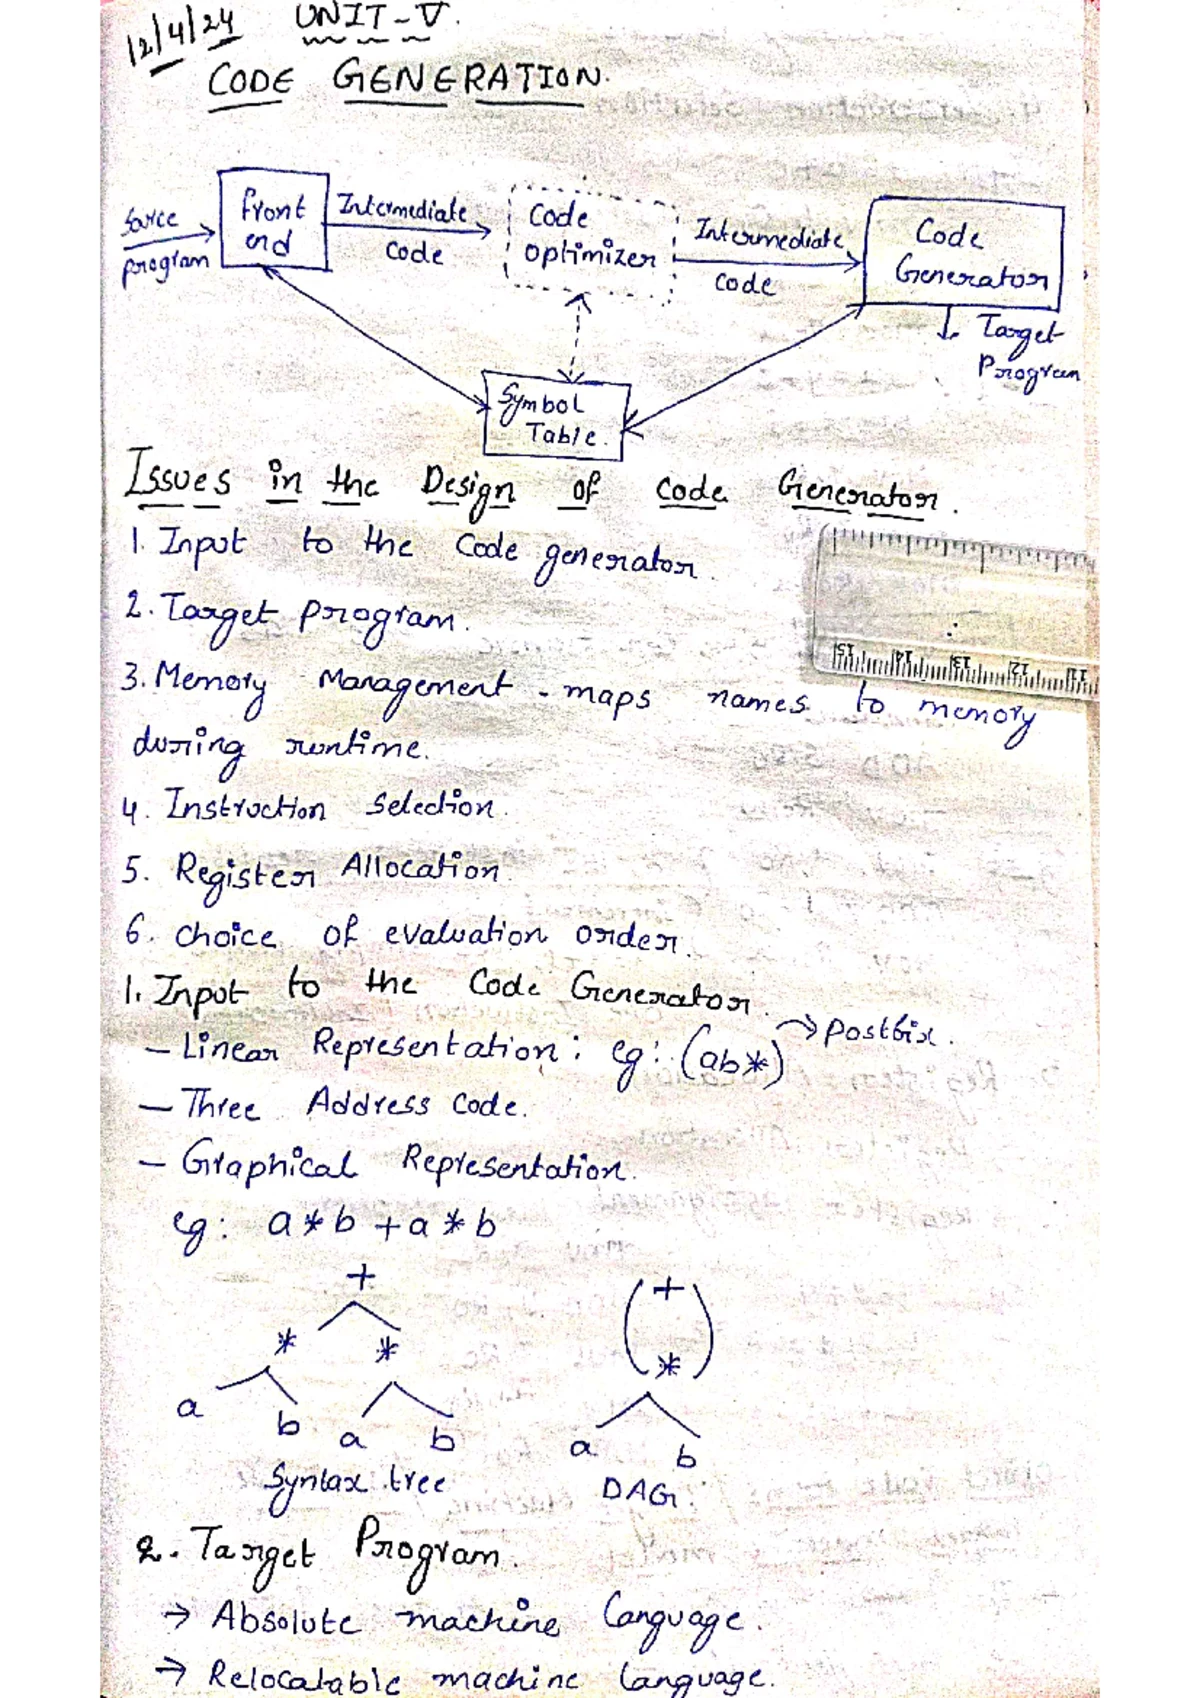 12/4/24 UNIT-V.
CODE GENERATION.
Source program
front end
Intermediate code
Code optimizer
Intermediate code
Code Generator
Target Program
Symbol Table.
Issues in the Design of code Generator.
1. Input to the Code generator.
2. Target program.
3. Memory Management - maps names to memory
during runtime.
4. Instruction selection.
5. Register Allocation.
6. choice of evaluation order.
1. Input to the Code Generator.
- Linear Representation: eg: (ab*) → postfix.
- Three Address code.
- Graphical Representation.
eg: a * b + a * b
+ +
* * *
a b a b a b
Syntax tree DAG.
2. Target Program.
→ Absolute machine language.
→ Relocatable machine language.